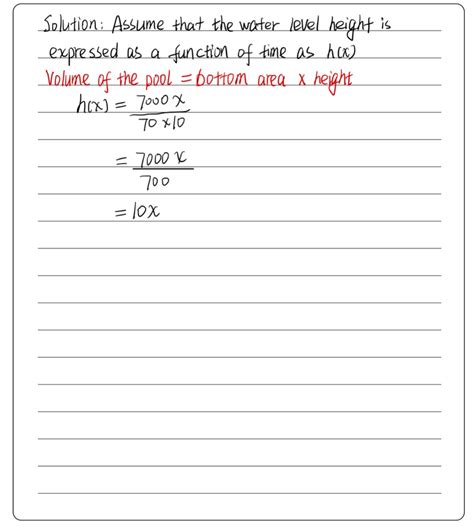 Solution: Assume that the water level height is
expressed as a function of time as h(x)
Volume of the pool = bottom area x height
h(x) = 7000x
70 x 10
= 7000 x
700
= 10x